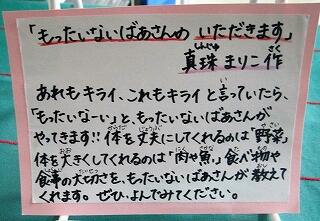 「もったいないばあさんの いただきます」
真珠 まりこ 作
あれもキライ、これもキライ と言っていたら、
「もったいなーい」と、もったいないばあさんが
やってきます!! 体を丈夫にしてくれるのは「野菜」
体を大きくしてくれるのは「肉や魚」。食べ物や
食事の大切さを、もったいないばあさんが 教えて
くれます。ぜひ、よんでみてください。